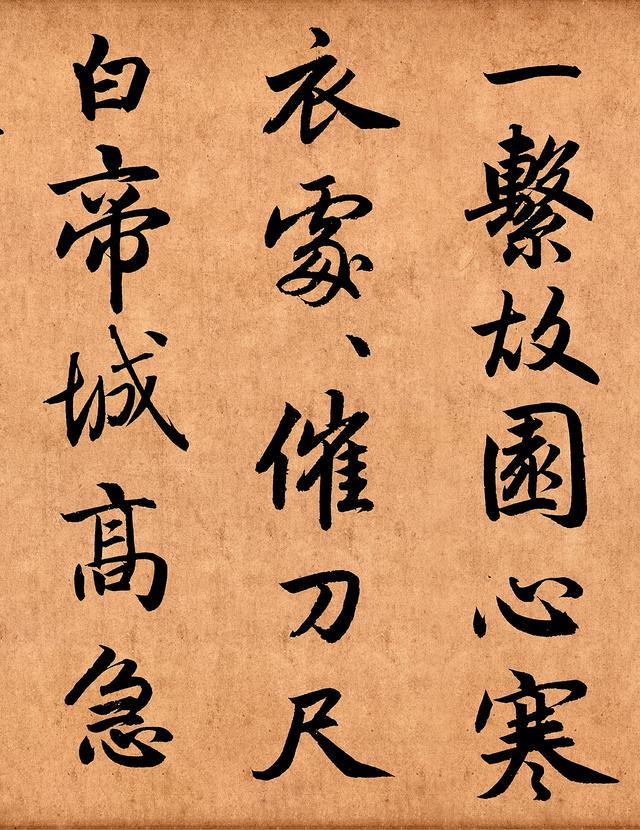 一繫故園心寒
衣處、催刀尺
白帝城髙急